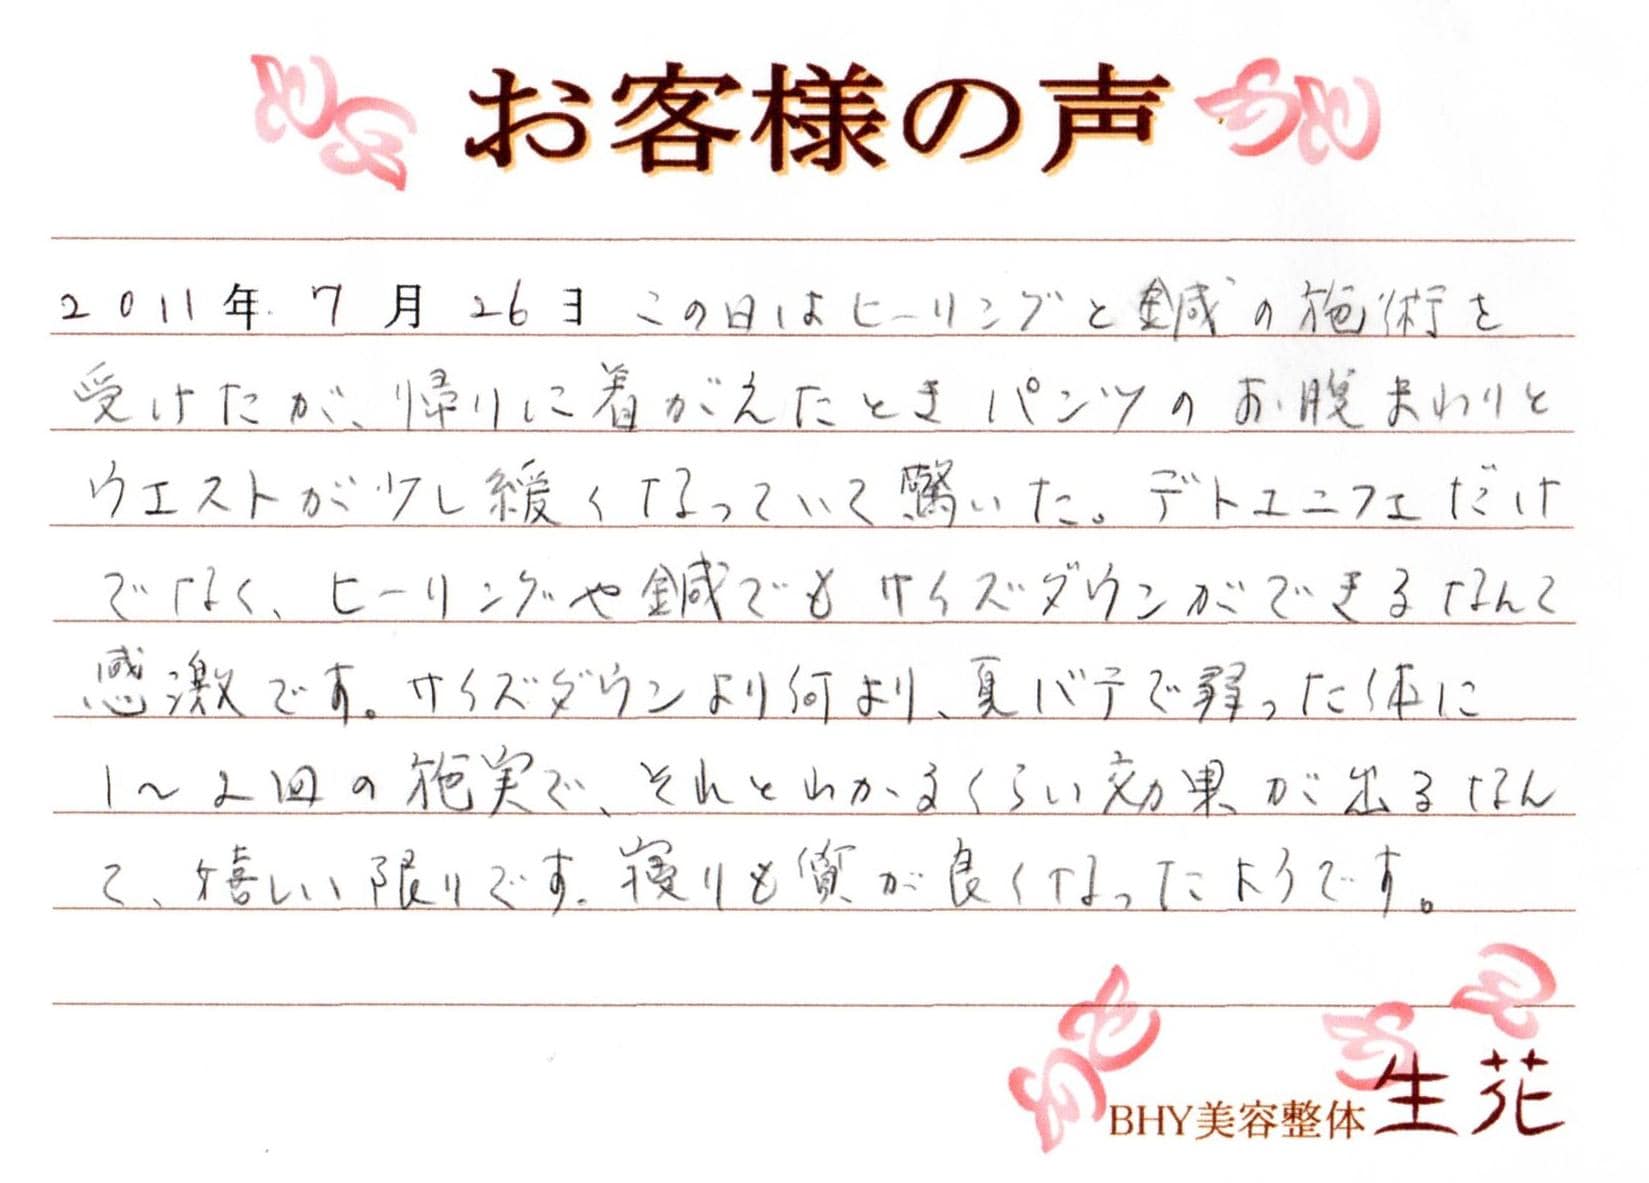 お客様の声
2011年 7月 26日 この日はヒーリングと鍼の施術を
受けたが、帰りに着がえたときパンツのお腹まわりと
ウエストが少し緩くなっていて驚いた。デトユニフェだけ
でなく、ヒーリングや鍼でもサイズダウンができるなんて
感激です。サイズダウンより何より、夏バテで弱った体に
1〜2回の施実で、それとわかるくらい効果が出るなん
て、嬉しい限りです。寝りも質が良くなったようです。
BHY美容整体 生花